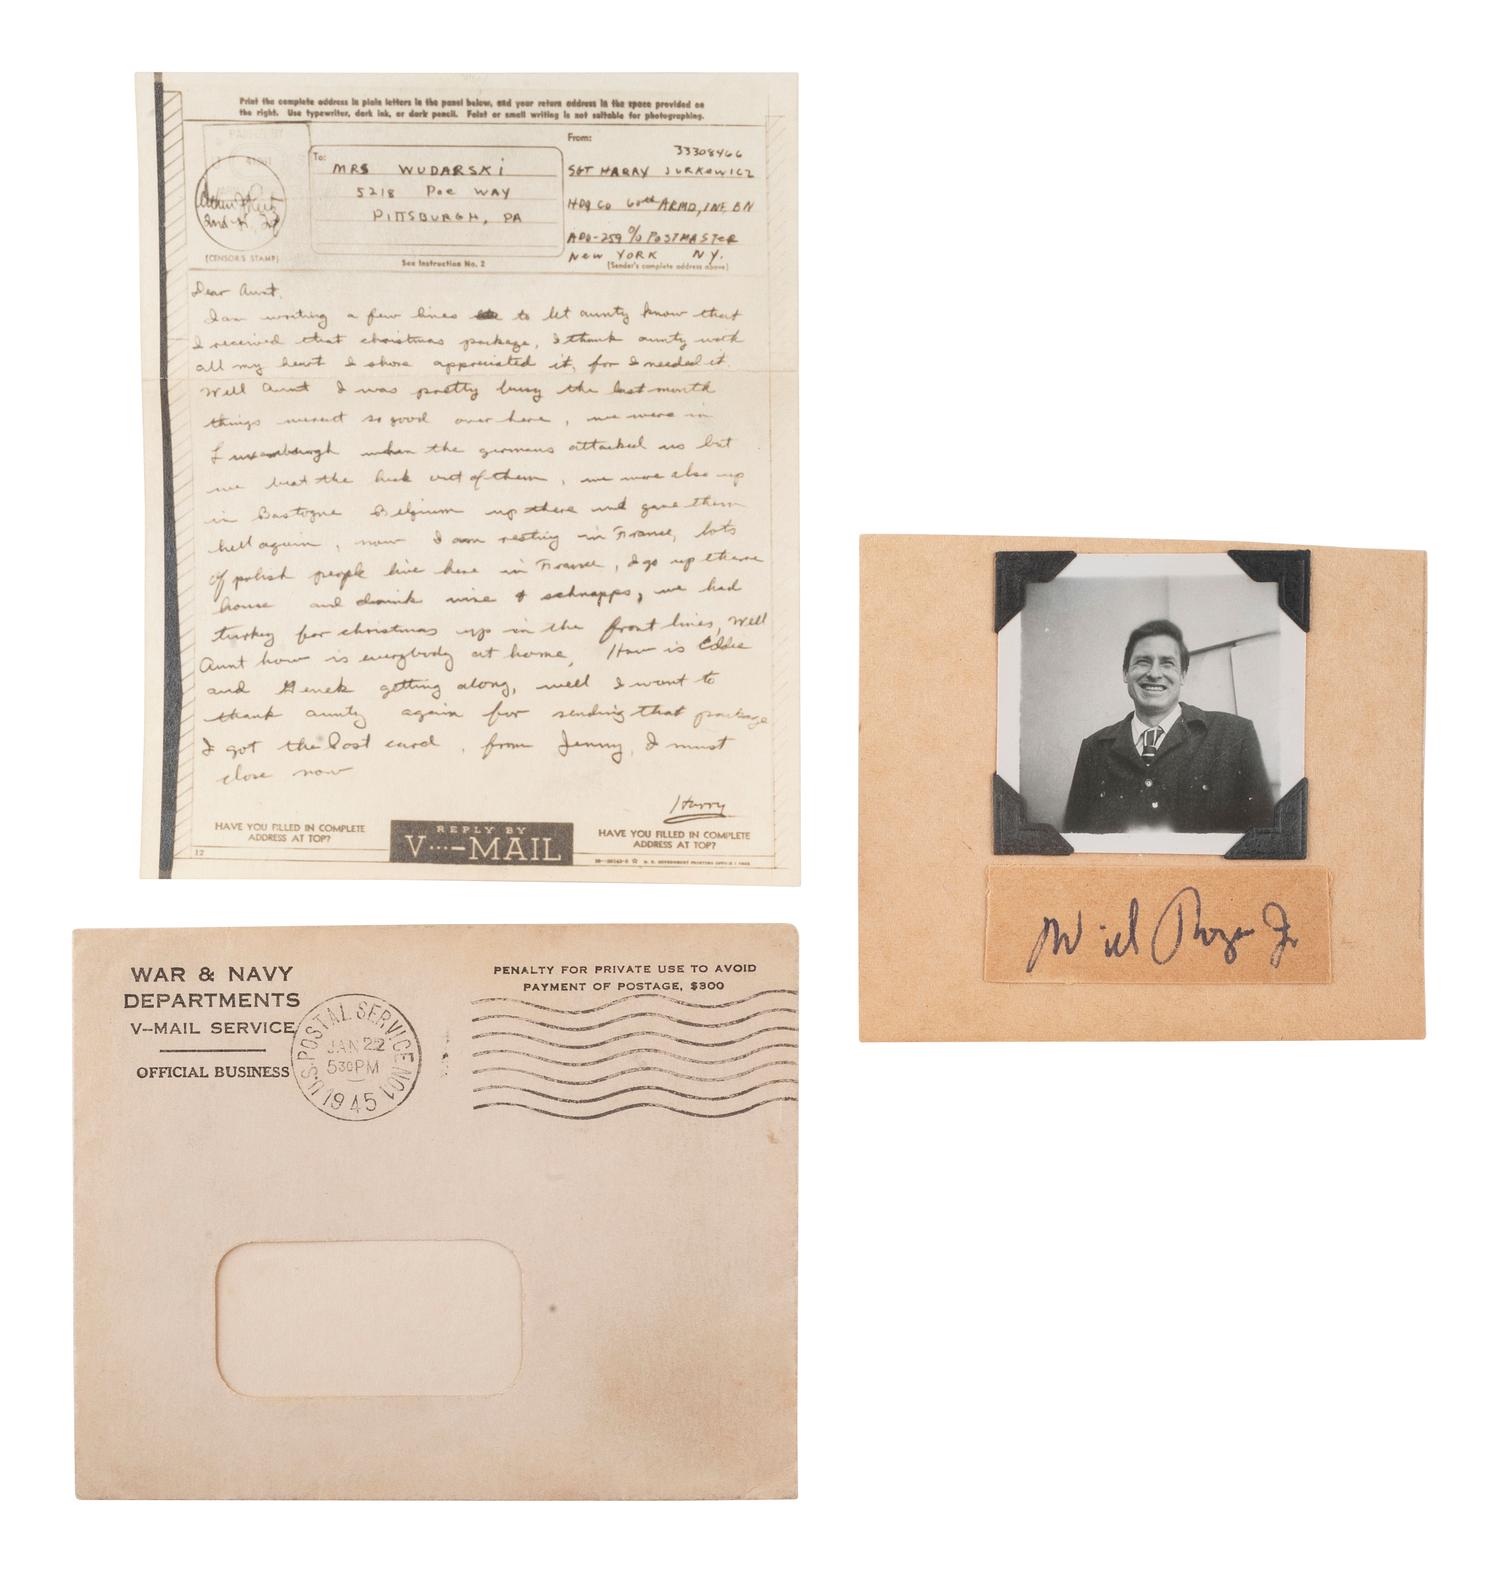 Print the complete address in plain letters in the panel below, and your return address in the space provided on
the right. Use typewriter, dark ink, or dark pencil. Faint or small writing is not suitable for photographing.
PASSED BY
(CENSOR'S STAMP)
To:
MRS WUDARSKI
5218 POE WAY
PITTSBURGH, PA
See Instruction No. 2
From:
33308466
SGT HARRY JURKOWICZ
HDQ CO 60th ARMD, INF, BN
APO-259 % POSTMASTER
NEW YORK NY.
(Sender's complete address above)
Dear Aunt,
I am writing a few lines to let aunty know that
I received that christmas package, I thank aunty with
all my heart I shore appreciated it, for I needed it.
Well Aunt I was pretty busy the last month
things werent so good over here, we were in
Luxembourgh when the germans attacked us but
we beat the heck out of them, we were also up
in Bastogne Belgium up there and gave them
hell again, now I am resting in France, lots
of polish people live here in France, I go up there
house and drink wine & schnapps, we had
turkey for christmas up in the front lines, Well
Aunt how is everybody at home, How is Eddie
and Genek getting along, well I want to
thank aunty again for sending that package
I got the Post card, from Jenny, I must
close now
Harry
HAVE YOU FILLED IN COMPLETE
ADDRESS AT TOP?
REPLY BY
V···—MAIL
HAVE YOU FILLED IN COMPLETE
ADDRESS AT TOP?
12
U. S. GOVERNMENT PRINTING OFFICE
WAR & NAVY
DEPARTMENTS
V--MAIL SERVICE
OFFICIAL BUSINESS
U.S. POSTAL SERVICE NO1
JAN 22
530PM
1945
PENALTY FOR PRIVATE USE TO AVOID
PAYMENT OF POSTAGE, $300
Jr